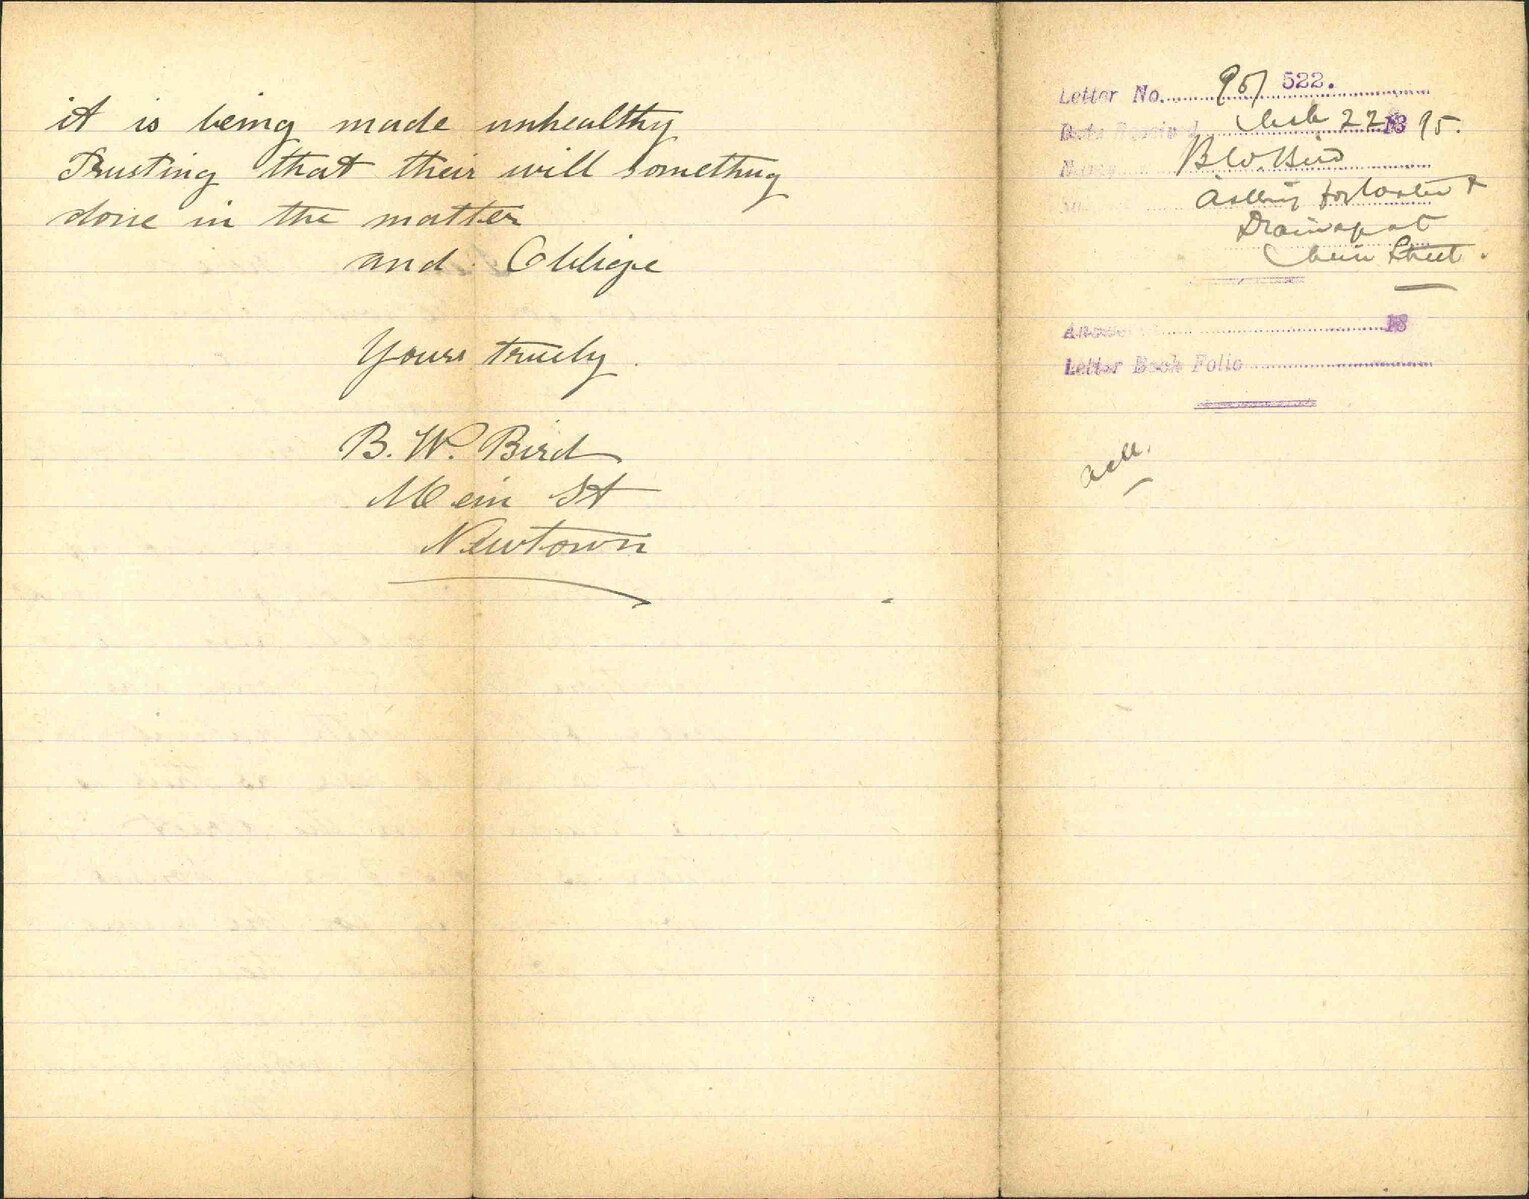 it is being made unhealthy
Trusting that their will something
done in the matter
and Obliege
Yours truely.
B. W. Bird
Mein St
Newtown
Letter No. 95/ 522.
Date Received 22 1895.
Name B W Bird
asking for water &
Drainage at
Mein Street.
Answered 18
Letter Book Folio